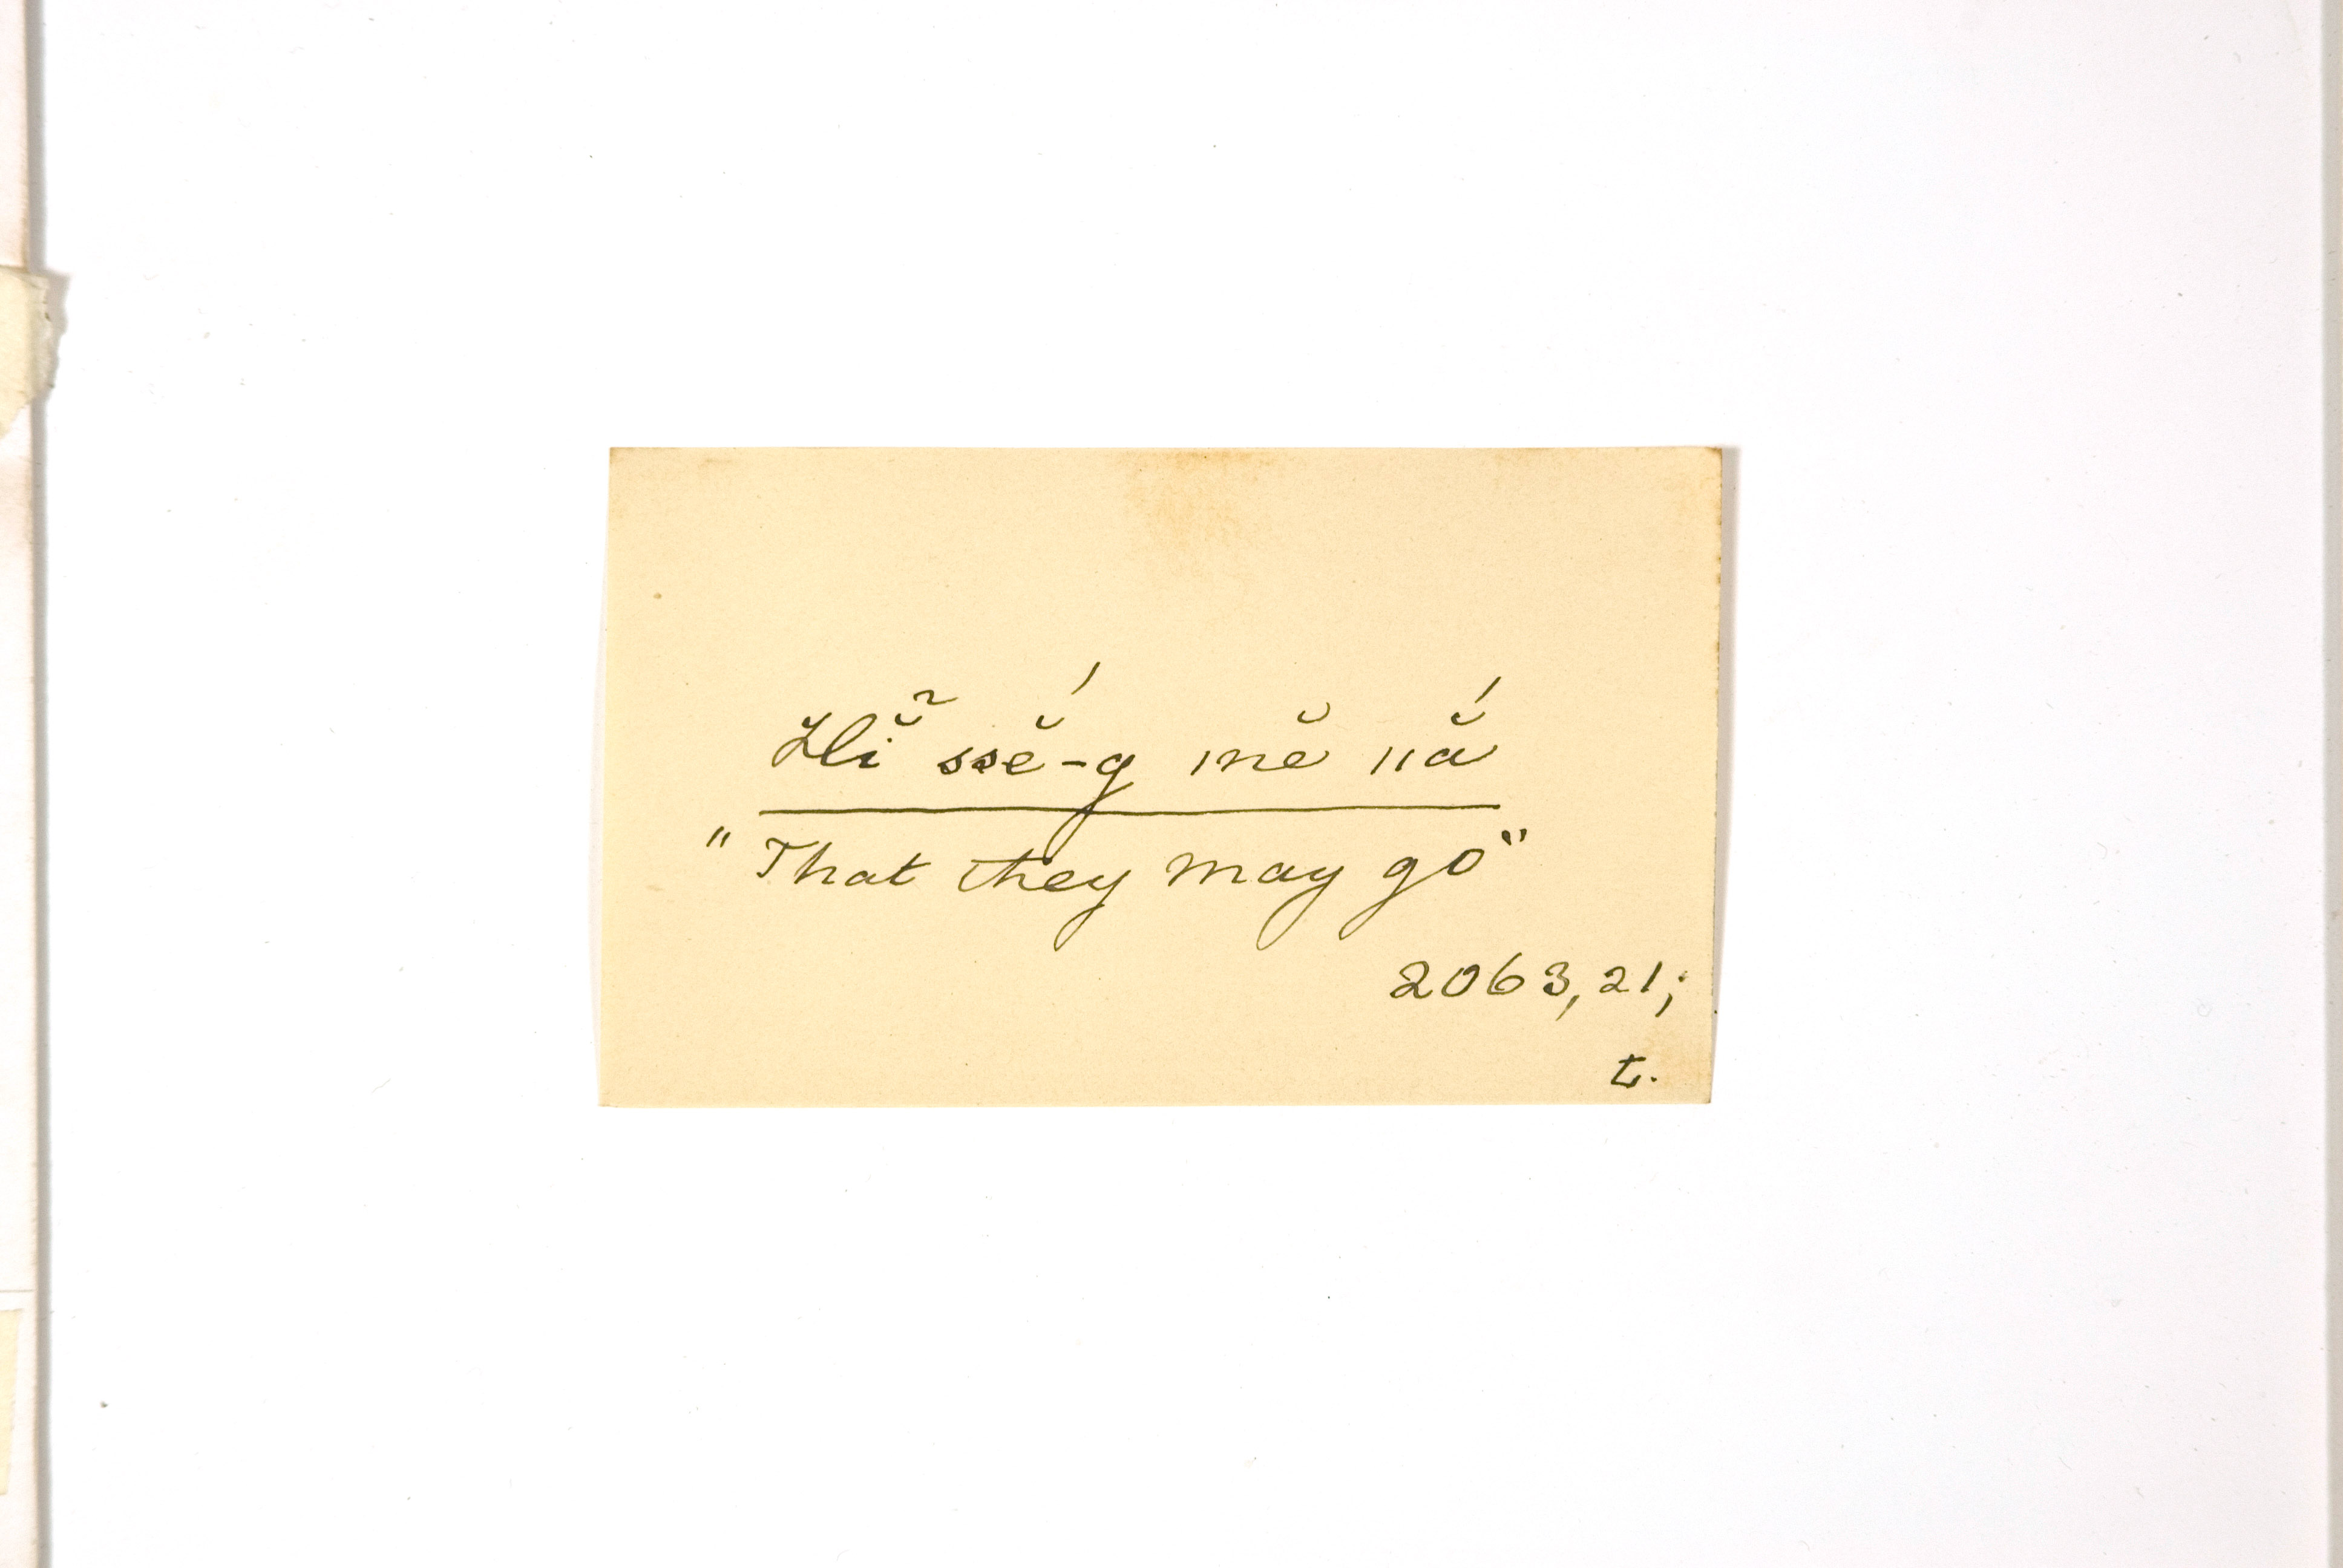 Hĭ̃ ssĕ́-g mĕ nắ
"That they may go"
2063, 21;
t.